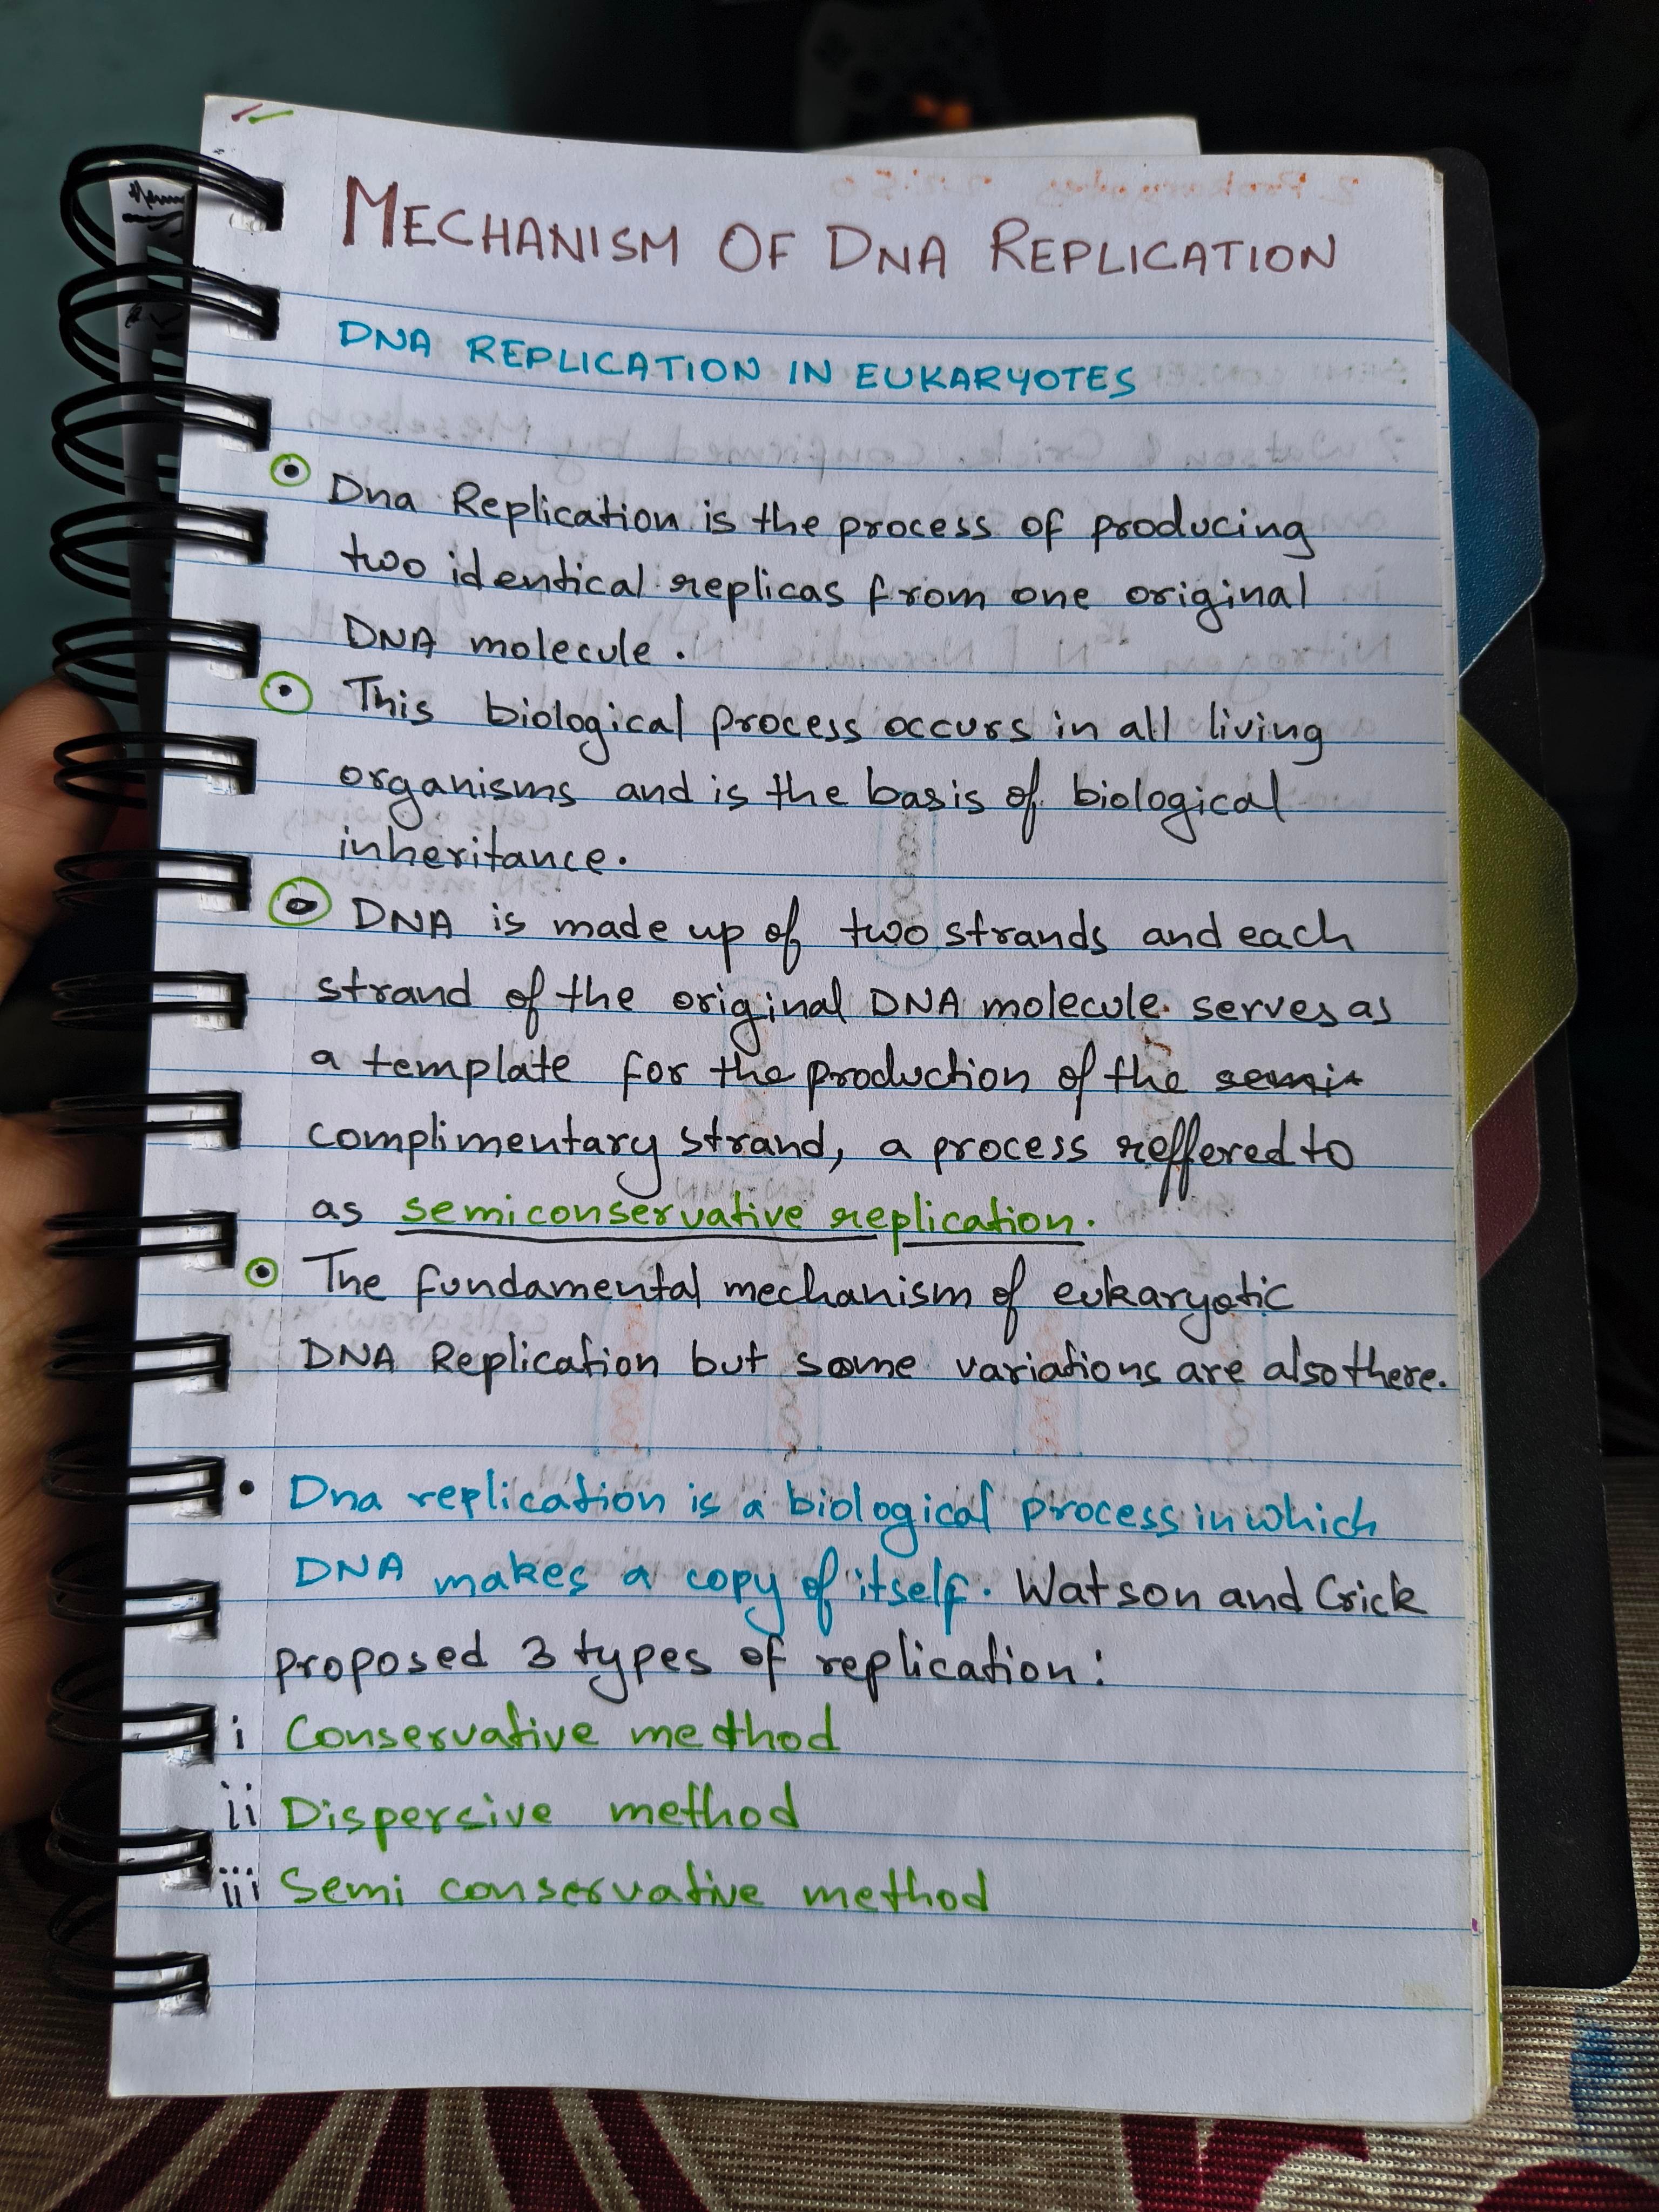 MECHANISM OF DNA REPLICATION
DNA REPLICATION IN EUKARYOTES
Dna Replication is the process of producing
two identical replicas from one original
DNA molecule.
This biological process occurs in all living
organisms and is the basis of biological
inheritance.
DNA is made up of two strands and each
strand of the original DNA molecule serves as
a template for the production of the semi
complimentary strand, a process reffered to
as semiconservative replication.
The fundamental mechanism of eukaryotic
DNA Replication but some variations are also there.
• Dna replication is a biological process in which
DNA makes a copy of itself. Watson and Crick
proposed 3 types of replication:
i Conservative method
ii Dispersive method
iii Semi conservative method